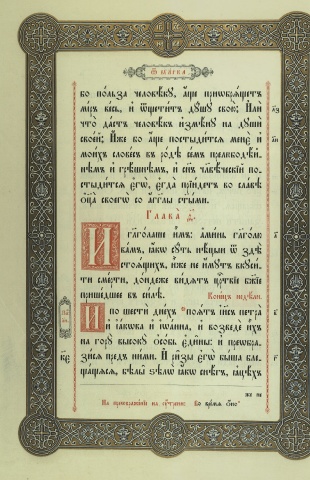 Ѿ ма́рка
бо по́льза человѣ́кꙋ, а҆́ще приѡбрѧ́щетъ
мі́ръ ве́сь, и҆ ѡ҆тщети́тъ дꙋ́шꙋ свою̀; И҆лѝ
что̀ да́стъ человѣ́къ и҆змѣ́нꙋ на дꙋшѝ
свое́й; И҆́же бо а҆́ще постыди́тсѧ менє̀ и҆
мои́хъ слове́съ въ ро́дѣ се́мъ прелюбодѣ́й
нѣмъ и҆ грѣ́шнѣмъ, и҆ сн҃ъ чл҃вѣ́ческїй по
стыди́тсѧ є҆гѡ̀, є҆гда̀ прїи́детъ во сла́вѣ
ѻ҆ц҃а̀ своегѡ̀ со а҆́гг҃лы ст҃ы́ми.
Глава̀ ѳ҃.
И҆ гл҃аго́лаше и҆̀мъ: а҆ми́нь глаго́лю
ва́мъ, ꙗ҆́кѡ сꙋ́ть нѣ́цыи ѿ здѣ̀
стоѧ́щихъ, и҆̀же не и҆́мꙋтъ вкꙋси́
ти сме́рти, до́ндеже ви́дѧтъ црⷭ҇твїе бж҃їе
прише́дшее въ си́лѣ. Коне́цъ недѣ́ли.
И҆ по шестѝ дни́хъ поѧ́тъ і҆и҃съ петра̀
и҆ і҆а́кѡва и҆ і҆ѡа́нна, и҆ возведѐ и҆̀хъ
на горꙋ̀ высокꙋ̀ ѻ҆со́бь є҆ди́ны: и҆ преѡбра
зи́сѧ пред̾ ни́ми. И҆ ри̑зы є҆гѡ̀ бы́ша бле
ща́щѧсѧ, бѣлы̑ ѕѣлѡ̀ ꙗ҆́кѡ снѣ́гъ, ꙗ҆цѣ́хъ
же не
На преображе́нїе на ᲂу҆́трени: Во вре́мѧ ѻ҆́но